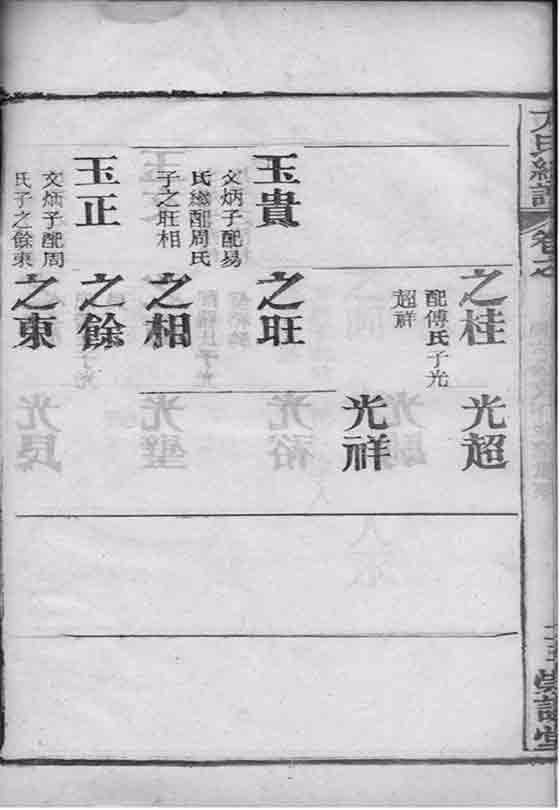 之桂
配傅氏子光
超祥
光超
光祥
玉貴
文炳子配易
氏繼配周氏
子之旺相
之旺
之相
玉正
文炳子配周
氏子之餘東
之餘
之東